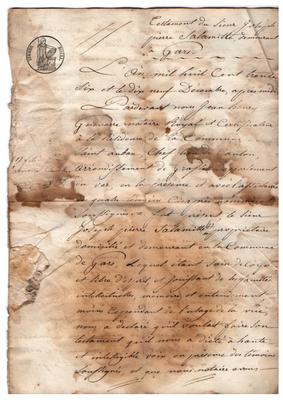 Testament du Sieur Joseph
pierre Salamitte demeurant
à Gars
L'an mil huit Cent trente
six et le dix neuf Décembre, après midi
Pardevant nous Jean henry
notaire Royal et Certificateur
à la résidence de la Commune
Saint auban, Chef de Canton,
arrondissement de Grasse, Département
du var, en la présence et avec l'assistance
quatre témoins
Soussignés, fut Présent, le Sieur
Joseph pierre Salamitte propriétaire
domicilié et demeurant en la Commune
de Gars, Lequel étant Sain de Corps
et libre d'esprit et jouissant de ses facultés
intellectuelles, mémoire et entendement
moins Cependant de l'usage de la vue
nous a déclaré qu'il voulait faire son
testament qu'il nous a dicté à haute
et intelligible voix en présence des témoins
Soussignés et que nous notaire avons